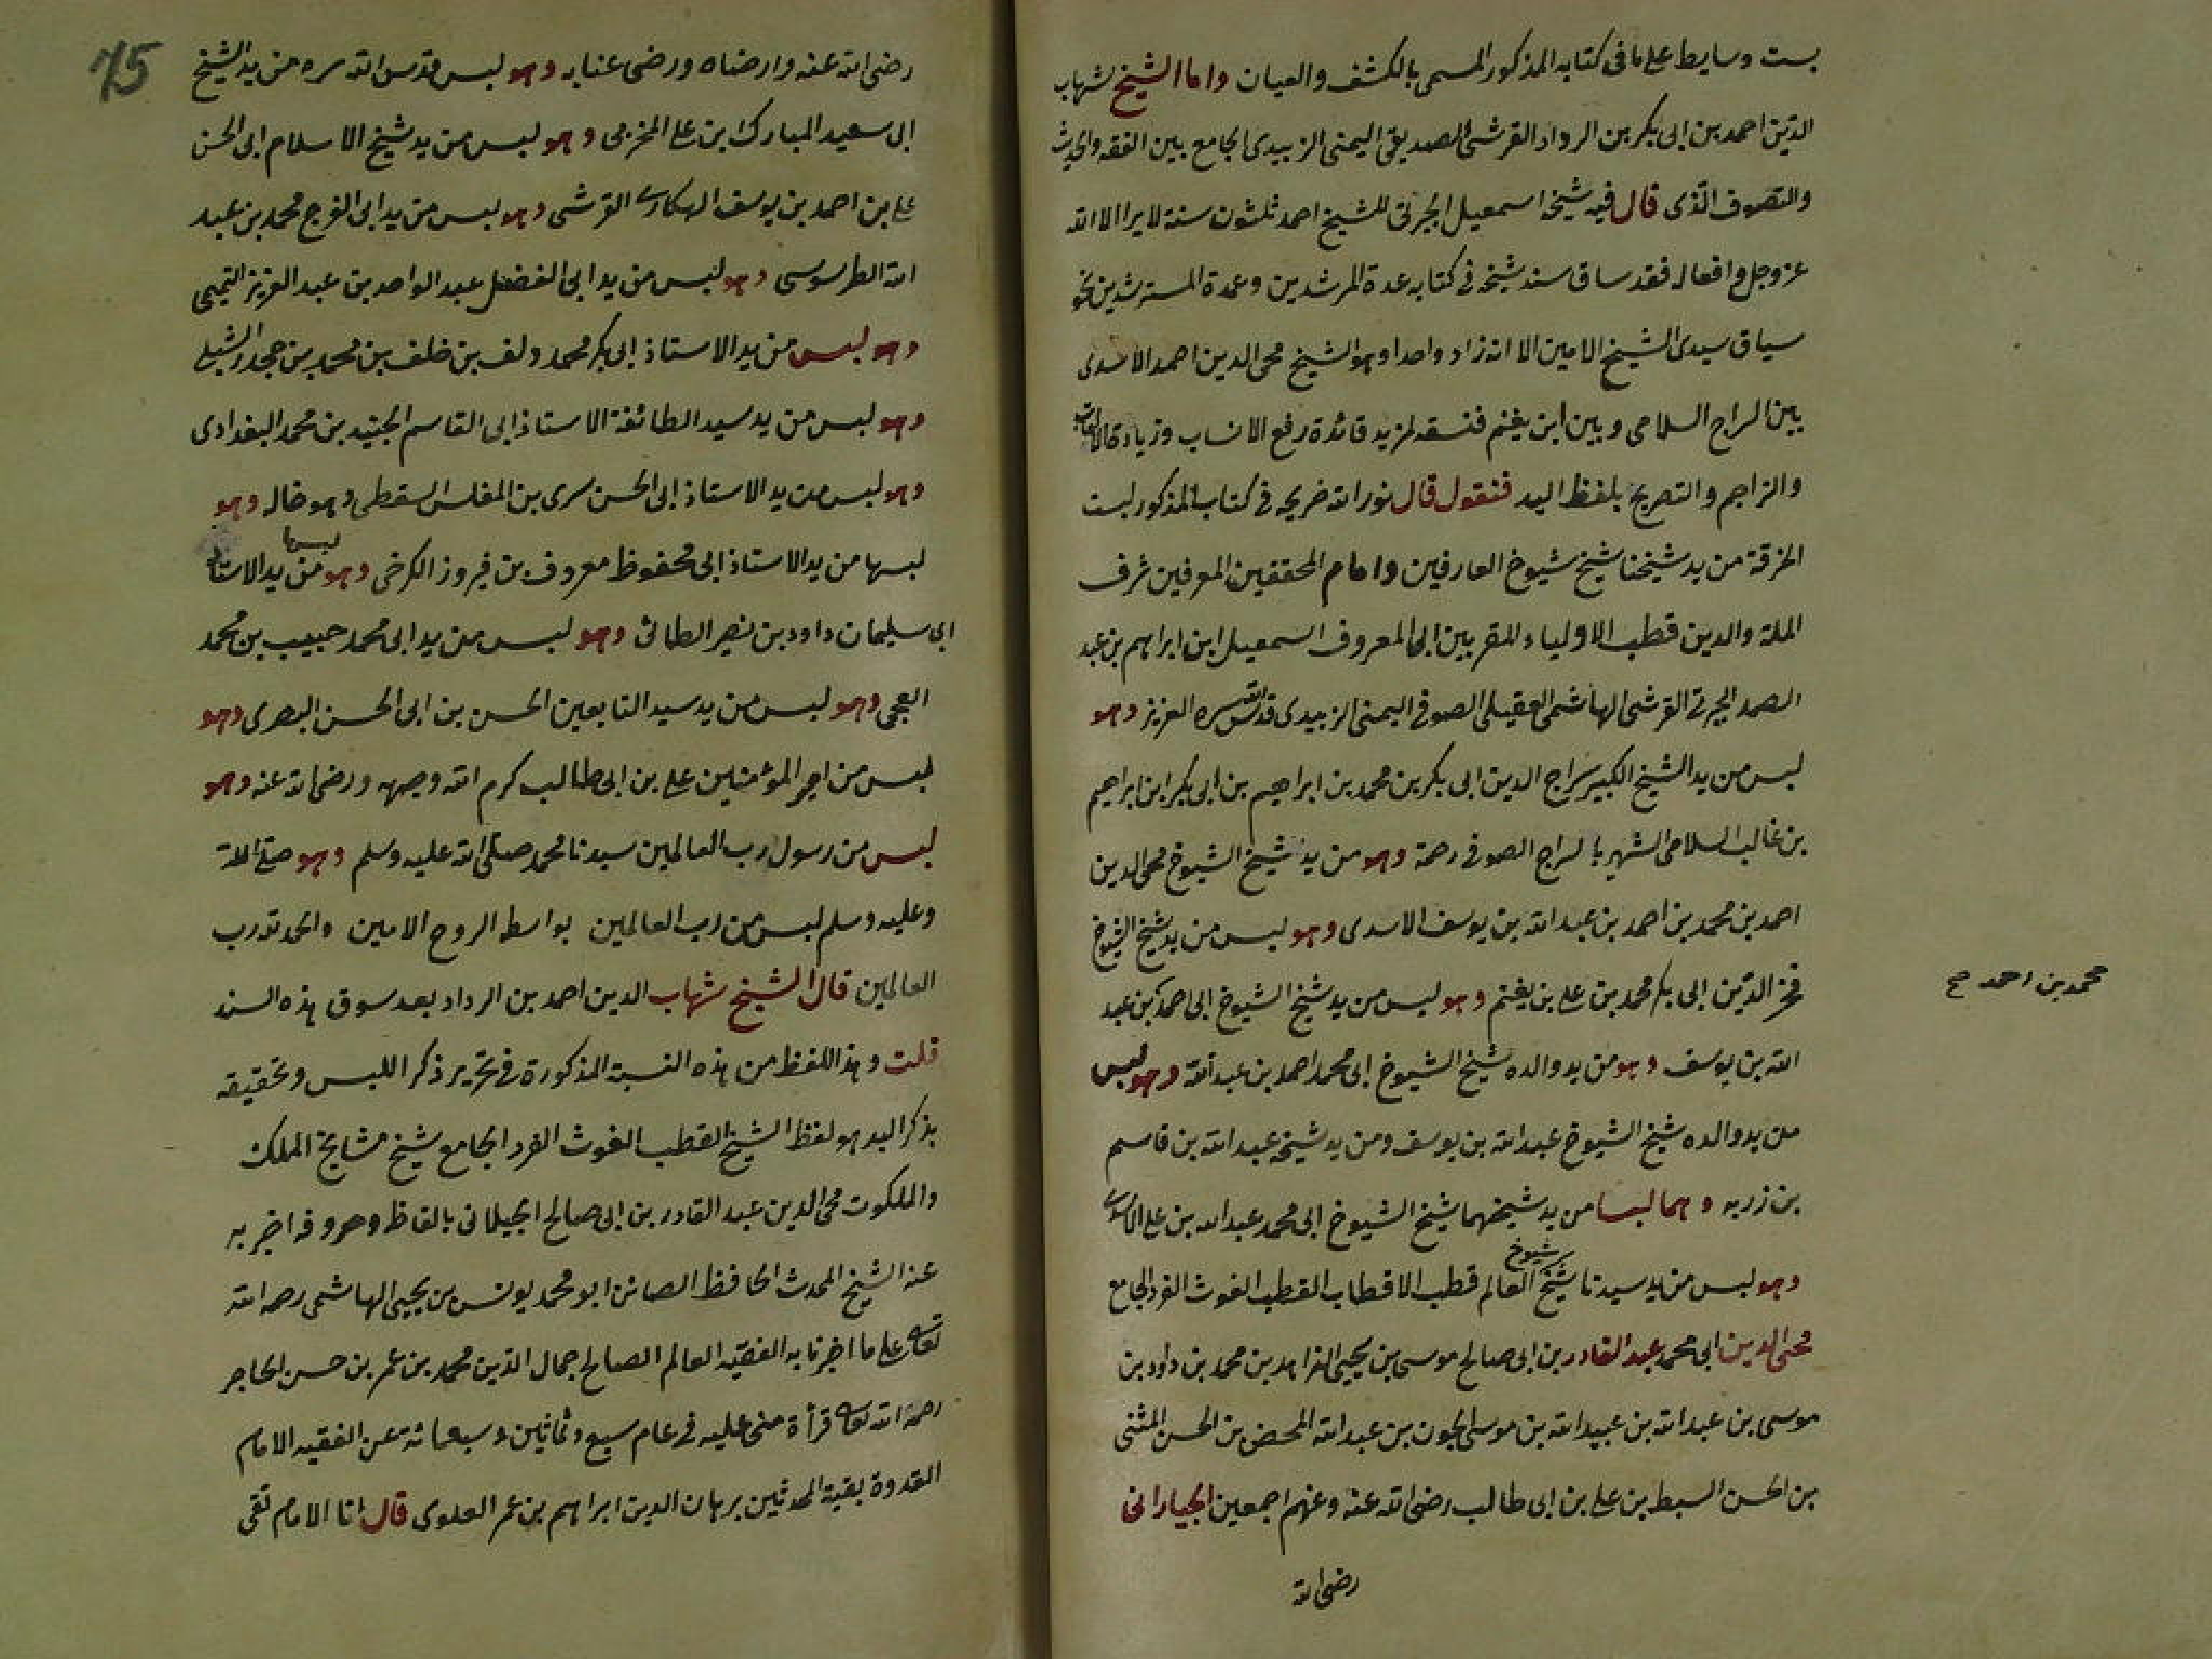 بست وسايط على ما فى كتابه المذكور المسمى بالكشف والعيان واما الشيخ شهاب
الدين احمد بن ابى بكر بن الرداد القرشى الصديقى اليمنى الزبيدى الجامع بين الفقه والحديث
والتصوف الذى قال فيه شيخه اسمعيل الجبرتى للشيخ احمد ثلثون سنة لا يرا الا الله
عز وجل وافعاله فقد ساق سند شيخه فى كتابه عدة المرشدين وعمدة المسترشدين نحو
سياق سيدى الشيخ الامين الا انه زاد واحدا وهو الشيخ محى الدين احمد الاسدى
بين السراج السلامى وبين ابن يغنم فنسقه لمزيد فائدة رفع الانساب وزيادة الالقاب
والتراجم والتصريح بلفظ اليد فنقول قال نور الله ضريحه فى كتاب المذكور لبست
الخرقة من يد شيخنا شيخ شيوخ العارفين وامام المحققين المعرفين شرف
الملة والدين قطب الاولياء المقربين ابى المعروف اسمعيل ابن ابراهيم بن عبد
الصمد الجبرتى القرشى الهاشمى العقيلى الصوفى اليمنى الزبيدى قدس الله سره العزيز وهو
لبس من يد الشيخ الكبير سراج الدين ابى بكر بن محمد بن ابراهيم بن ابى بكر ابن ابراهيم
بن غالب السلامى الشهير بالسراج الصوفى رحمه وهو من يد شيخ الشيوخ محى الدين
احمد بن محمد بن احمد بن عبد الله بن يوسف الاسدى وهو لبس من يد شيخ الشيوخ
فخر الدين ابى بكر محمد بن على بن يغنم وهو لبس من يد شيخ الشيوخ ابى احمد بن عبد
محمد بن احمد صح
الله بن يوسف وهو من يد والده شيخ الشيوخ ابى محمد احمد بن عبد الله وهو لبس
من يد والده شيخ الشيوخ عبد الله بن يوسف ومن يد شيخه عبد الله بن قاسم
بن زربه وهما لبسا من يد شيخهما شيخ الشيوخ ابى محمد عبد الله بن على الاسدى
وهو لبس من يد سيدنا شيخ شيوخ العالم قطب الاقطاب القطب الغوث الفرد الجامع
محى الدين ابى محمد عبد القادر بن ابى صالح موسى بن يحيى الزاهد بن محمد بن داود بن
موسى بن عبد الله بن عبيد الله بن موسى الجون بن عبد الله المحض بن الحسن المثنى
بن الحسن السبط بن على بن ابى طالب رضى الله عنه وعنهم اجمعين الجيلانى
رضى الله
75
رضى الله عنه وارضاه ورضى عنا به وهو لبس قدس الله سره من يد الشيخ
ابى سعيد المبارك ابن على المخزمى وهو لبس من يد شيخ الاسلام ابى الحسن
على بن احمد بن يوسف الهكارى القرشى وهو لبس من يد ابى الفرج محمد بن عبد
الله الطرسوسى وهو لبس من يد ابى الفضل عبد الواحد بن عبد العزيز التميمى
وهو لبس من يد الاستاذ ابى بكر محمد دلف بن خلف بن محمد بن جحدر الشبلى
وهو لبس من يد سيد الطائفة الاستاذ ابى القاسم الجنيد بن محمد البغدادى
وهو لبس من يد الاستاذ ابى الحسن سرى بن المغلس السقطى وهو خاله وهو
لبسها من يد الاستاذ ابى محفوظ معروف بن فيروز الكرخى وهو لبسها من يد الاستاذ
ابى سليمان داود بن نصير الطائى وهو لبس من يد ابى محمد حبيب بن محمد
العجمى وهو لبس من يد سيد التابعين الحسن بن ابى الحسن البصرى وهو
لبس من امير المؤمنين على بن ابى طالب كرم الله وجهه ورضى الله عنه وهو
لبس من رسول رب العالمين سيدنا محمد صلى الله عليه وسلم وهو صلى الله
وعليه وسلم لبس من رب العالمين بواسطه الروح الامين والحمد لله رب
العالمين قال الشيخ شهاب الدين احمد بن الرداد بعد سوق هذه السند
قلت وهذا اللفظ من هذه النسبة المذكورة فى تحرير ذكر اللبس وتحقيقه
بذكر اليد هو لفظ الشيخ القطب الغوث الفرد الجامع شيخ مشايخ الملك
والملكوت محى الدين عبد القادر بن ابى صالح الجيلانى بالفاظ وحروفه اخبر به
عنه الشيخ المحدث الحافظ الصائن ابو محمد يونس بن يحيى الهاشمى رحمه الله
تعالى على ما اخبرنا به الفقيه العالم الصالح جمال الدين محمد بن عمر بن حسن الحاجر
رحمة الله تعالى قرأة منى عليه فى عام سبع وثمانين وسبعمائة عن الفقيه الامام
القدوة بقية المحدثين برهان الدين ابراهيم بن عمر العلوى قال انا الامام تقى